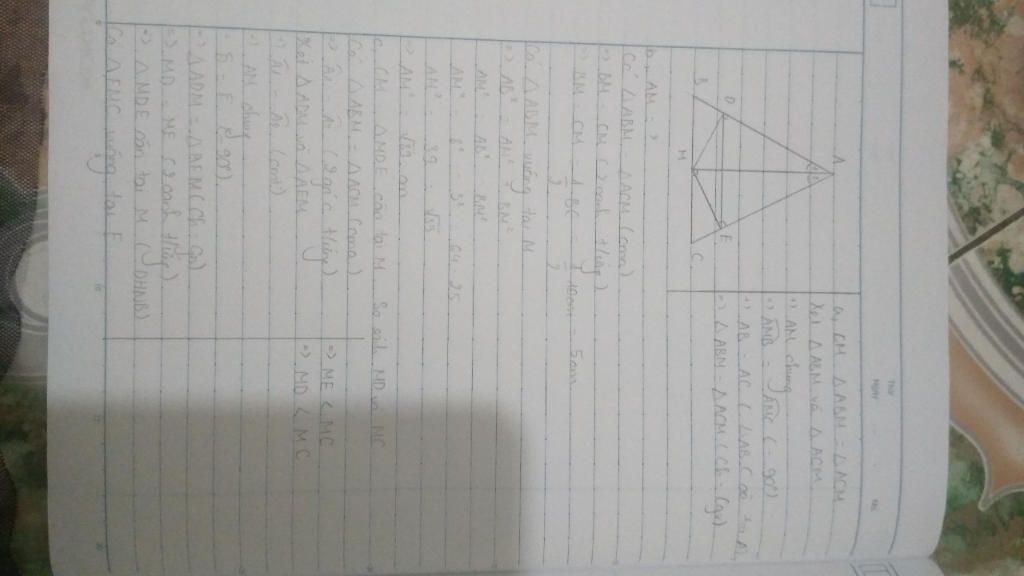 THỨ
NGÀY
A
B
D
E
M
C
a, CM ΔABM = ΔACM
Xét ΔABM và ΔACM
+) AM chung
+) AMB = AMC (= 90°)
+) AB = AC ( ΔABC cân tại A)
=> ΔABM = ΔACM ( Ch - Cgv)
b, AM = ?
Có ΔABM = ΔACM (cma)
=> BM = CM ( 2 cạnh t/ứng )
=> BM = CM = 1/2 BC = 1/2 10cm = 5cm
Có ΔABM vuông tại M
=> AB² = AM² + BM²
AM² = AB² - BM²
AM² = 8² - 5² = 64 - 25
AM² = 39 = √39
=> AM² = √39 cm
c, CM ΔMDE cân tại M. So sánh MD và MC
Có ΔABM = ΔACM (cma)
=> A1 = A2 ( 2 góc t/ứng )
Xét ΔADM và ΔAEM
+) A1 = A2 (cmt)
+) AM chung
D = E (= 90°)
=> ΔADM = ΔAEM ( Ch - Gn)
=> MD = ME ( 2 cạnh t/ứng )
=> ΔMDE cân tại M ( DHNB)
Có ΔEMC vuông tại E
=> ME < MC
=> MD < MC